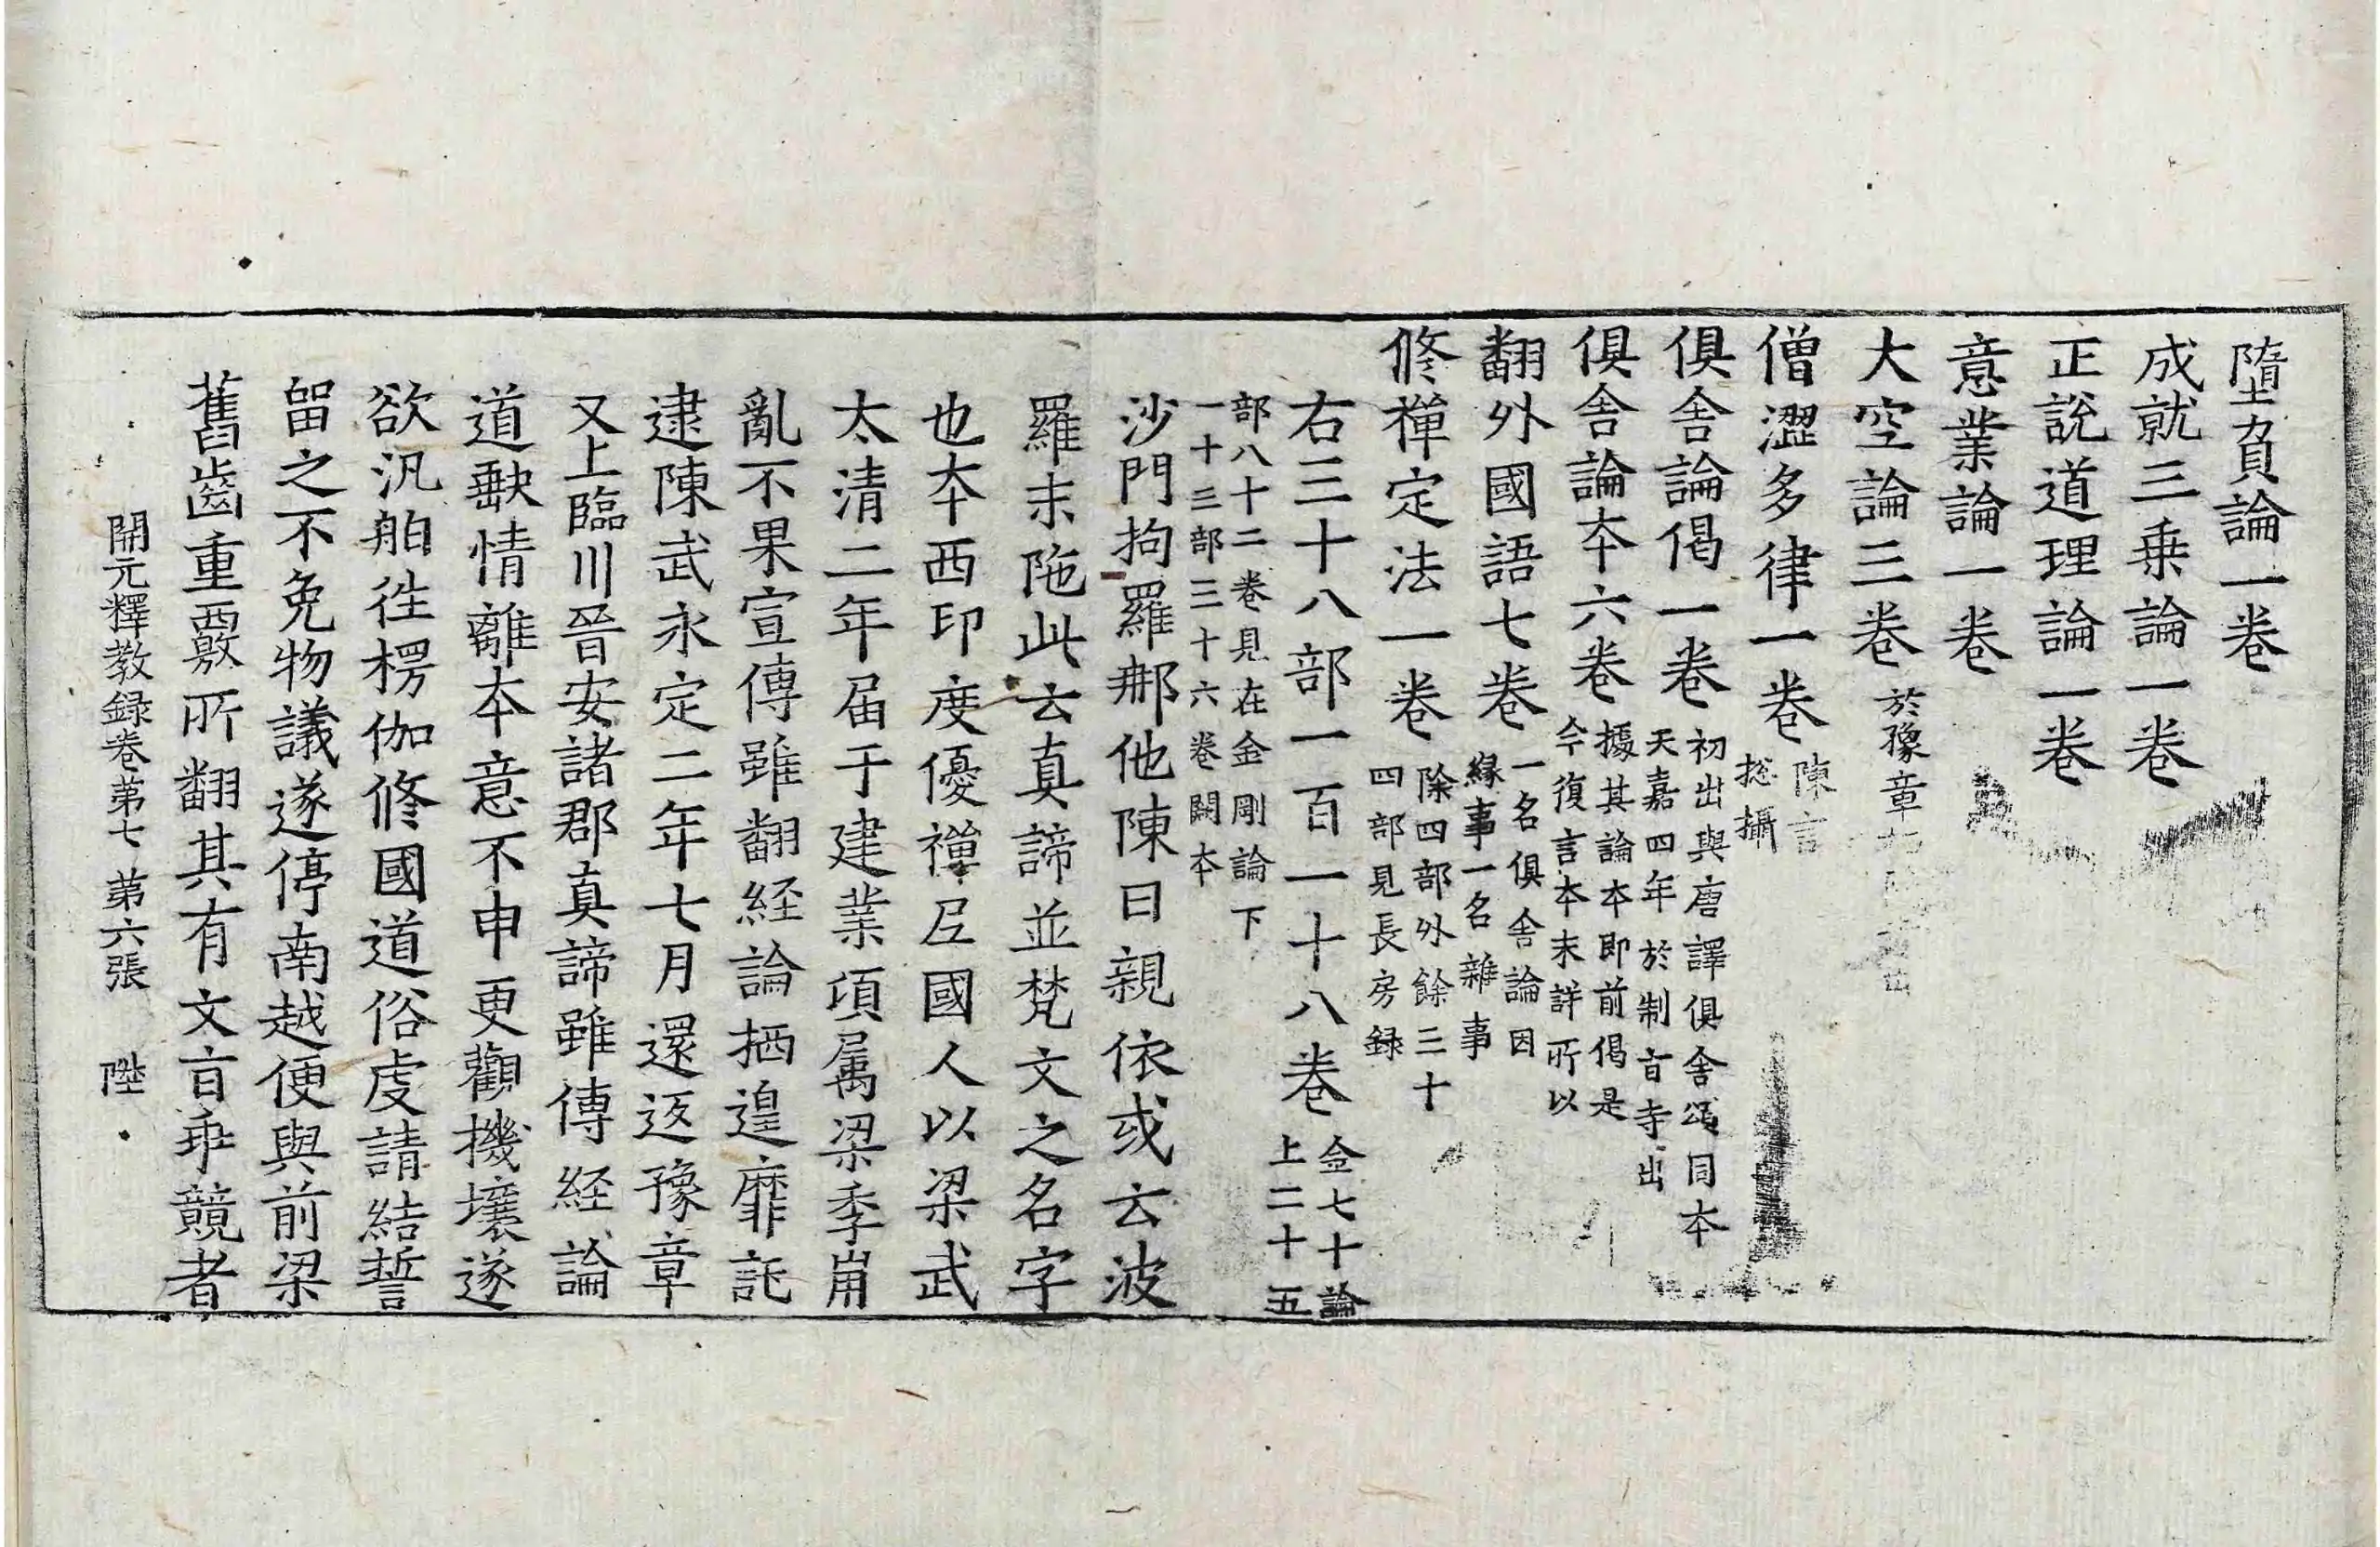 墮負論一卷
成就三乗論一卷
正說道理論一卷
意業論一卷
大空論三卷於豫章
僧澀多律一卷陳言揔攝
俱舍論偈一卷初出與唐譯俱舍頌同本天嘉四年於制旨寺出
俱舍論本六卷據其論本即前偈是今復言本未詳所以
翻外國語七卷一名俱舍論因縁事一名雜事
修禪定法一卷除四部外餘三十四部見長房録
右三十八部一百一十八卷金七十論上二十五
部八十二卷見在金剛論下一十三部三十六卷闕本
沙門拘羅那他陳曰親依或云波
羅末陁此云真諦並梵文之名字
也本西印度優禪尼國人以梁武
太清二年届于建業項属梁季崩
亂不果宣傳雖翻経論栖遑靡託
逮陳武永定二年七月還返豫章
又上臨川晉安諸郡真諦雖傳経論
道歉情離本意不申更觀機壤遂
欲汎舶往楞伽修國道俗虔請結誓
留之不免物議遂停南越便與前梁
舊齒重覈所翻其有文旨乖競者
開元釋教録卷第七 第六張 陛